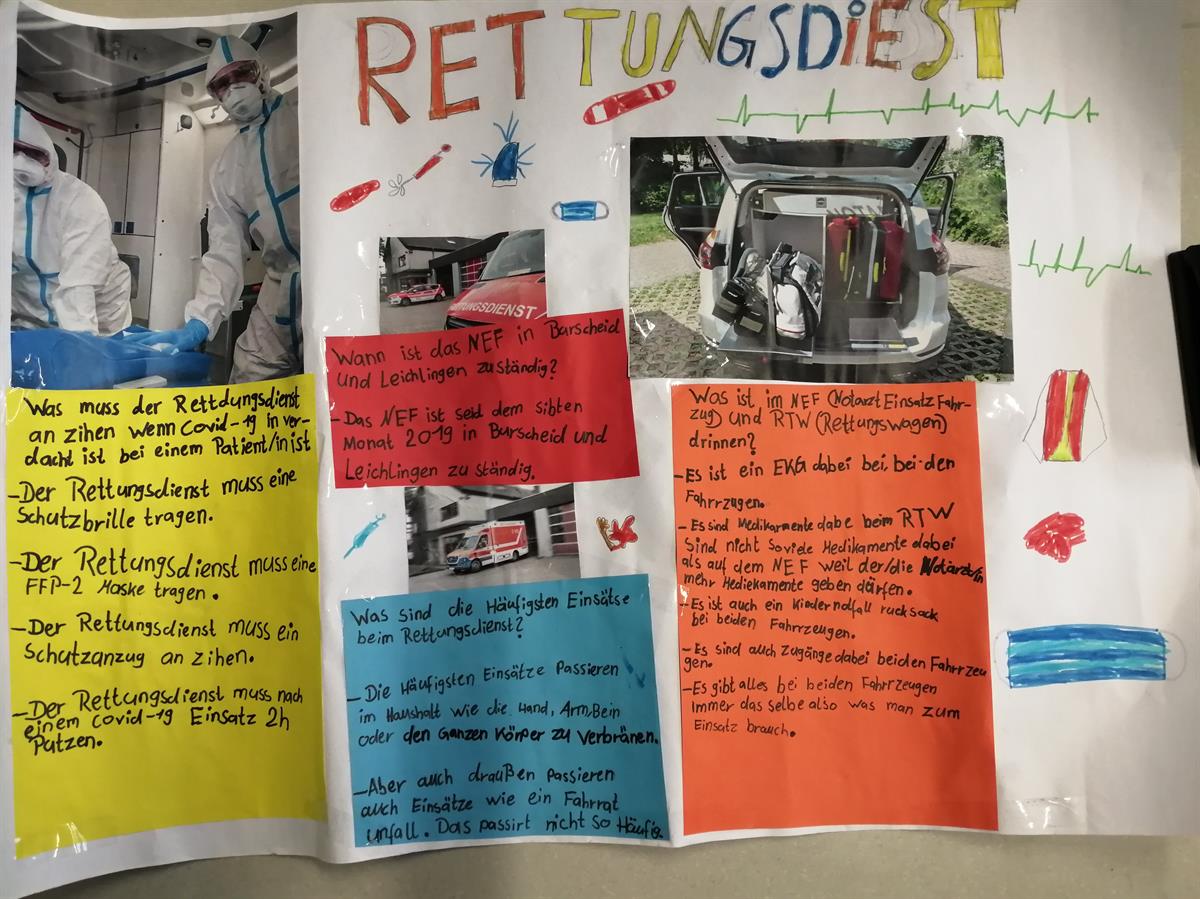 RETTUNGSDiEST
Was muss der Rettdungsdienst
an zihen wenn Covid-19 in ver-
dacht ist bei einem Patient/in ist
-Der Rettungsdienst muss eine
Schutzbrille tragen.
-Der Rettungsdienst muss eine
FFP-2 Maske tragen.
-Der Rettungsdienst muss ein
Schutzanzug an zihen.
-Der Rettungsdienst muss nach
einem Covid-19 Einsatz 2h
Putzen.
RETTUNGSDIENST
Wann ist das NEF in Burscheid
und Leichlingen zuständig?
-Das NEF ist seid dem sibten
Monat 2019 in Burscheid und
Leichlingen zu ständig.
Was sind die Häufigsten Einsätse
beim Rettungsdienst?
-Die Häufigsten Einsätze Passieren
im Haushalt wie die Hand, Arm, Bein
oder den Ganzen Körper zu Verbränen.
-Aber auch draußen passieren
auch Einsätze wie ein Fahrrat
unfall. Das passirt nicht so Häufig.
Was ist im NEF (Notarzt Einsatz Fahr-
zug) und RTW (Rettungswagen)
drinnen?
-Es ist ein EKG dabei bei bei-den
Fahrrzugen.
-Es sind Medikarmente dabe beim RTW
sind nicht soviele Medikamente dabei
als auf dem NEF weil der/die Notarzt/in
mehr Mediekamente geben därfen.
-Es ist auch ein Kindernotfall rucksack
bei beiden Fahrrzeugen.
-Es sind auch Zugänge dabei beiden Fahrrzeu
gen.
-Es gibt alles bei beiden Fahrrzeugen
Immer das selbe also was man zum
Einsatz brauch.